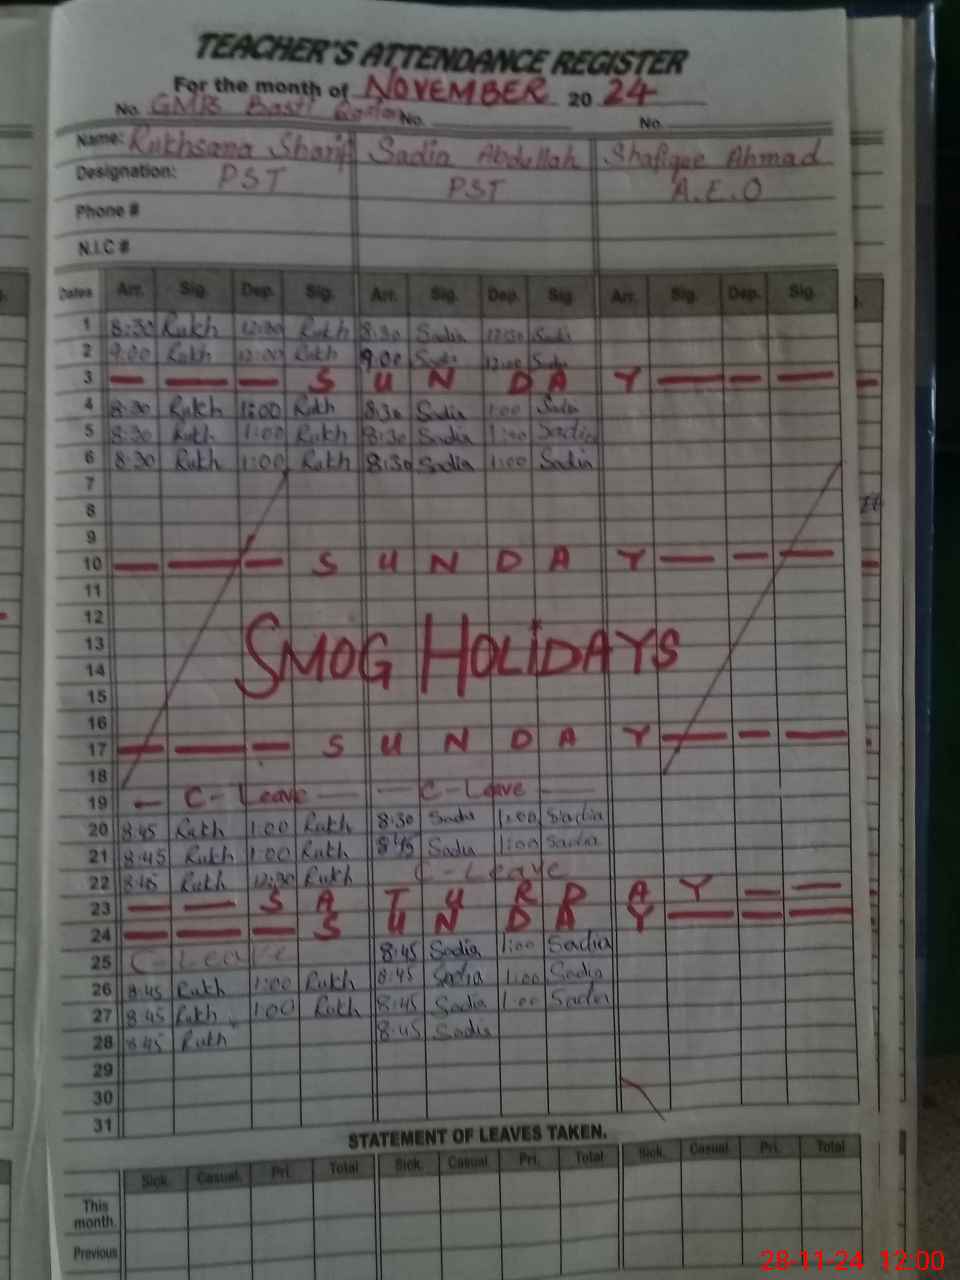 TEACHER'S ATTENDANCE REGISTER
For the month of NOVEMBER 20 24
No. GMPS Basti No. No.
Name: Rukhsana Sharif Sadia Abdullah Shafique Ahmad
Designation: PST PST A.E.O
Phone #
N.I.C #
Dates Arr. Sig. Dep. Sig. Arr. Sig. Dep. Sig. Arr. Sig. Dep. Sig.
1 8:30 Rukh 12:30 Rukh 8:30 Sadia 12:30 Sadia
2 9:00 Rukh 12:00 Rukh 9:00 Sadia 12:00 Sadia
3 — — — S U N D A Y — — —
4 8:30 Rukh 1:00 Rukh 8:30 Sadia 1:00 Sadia
5 8:30 Rukh 1:00 Rukh 8:30 Sadia 1:00 Sadia
6 8:30 Rukh 1:00 Rukh 8:30 Sadia 1:00 Sadia
7
8
9
10 — — — S U N D A Y — — —
11
12
13 SMOG HOLIDAYS
14
15
16
17 — — — S U N D A Y — — —
18
19 — C-Leave — — C-Leave —
20 8:45 Rukh 1:00 Rukh 8:30 Sadia 1:00 Sadia
21 8:45 Rukh 1:00 Rukh 8:45 Sadia 1:00 Sadia
22 8:45 Rukh 12:30 Rukh C-Leave
23 — — S A T U R D A Y — —
24 — — — S U N D A Y — — —
25 C-Leave 8:45 Sadia 1:00 Sadia
26 8:45 Rukh 1:00 Rukh 8:45 Sadia 1:00 Sadia
27 8:45 Rukh 1:00 Rukh 8:45 Sadia 1:00 Sadia
28 8:45 Rukh 8:45 Sadia
29
30
31
STATEMENT OF LEAVES TAKEN.
Sick. Casual. Pri. Total Sick. Casual Pri. Total Sick. Casual Pri. Total
This month.
Previous
28-11-24 12:00